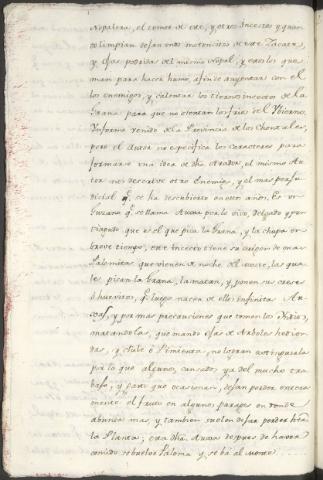 Nopalera, el comer de este, y otros Insectos y quan
se limpian dejan unos montoncitos de este Zacate,
y ojas podridas del mismo nopal, y estos los que
man para hacer humo, afin de auyentar con el
los enemigos, y calentar los tiernos insectos de la
Grana para que no sientan los frios del Ybierno.
Ynforme venido de la Provincia de los Chontales,
pero el Autor no especifica los caracteres para
formar una idea de dho Arador, el mismo Au
tor nos descubre otro Enemigo, y el mas perju
dicial q.e se ha descubierto en estos años. Es un
Gusano q.e se llama Aura por lo vivo, delgado y
que es el que pica la Grana, y la chupa en
breve tiempo, este insecto tiene su origen de una
Palomita que vienen de noche del oeste, las qua
les pican la Grana, la matan, y ponen sus
ó huevesitos, q.e luego nacen de ellos infinitas Au
ras, y por mas precauciones que tomen los Yndios,
matandola, quemando ojas de Arboles hedion
das, y chile ó Pimienta, no logran extinguirla
por lo que algunos, cansados ya del mucho tra
bajo, y parte que ocasionan, dejan perder entera
mente el fruto en algunos parages en donde
abunda mas, y tambien suelen dejar perder hta
la Planta; esta dha Aura despues de haver
comido se buelve Paloma y se bá al oeste